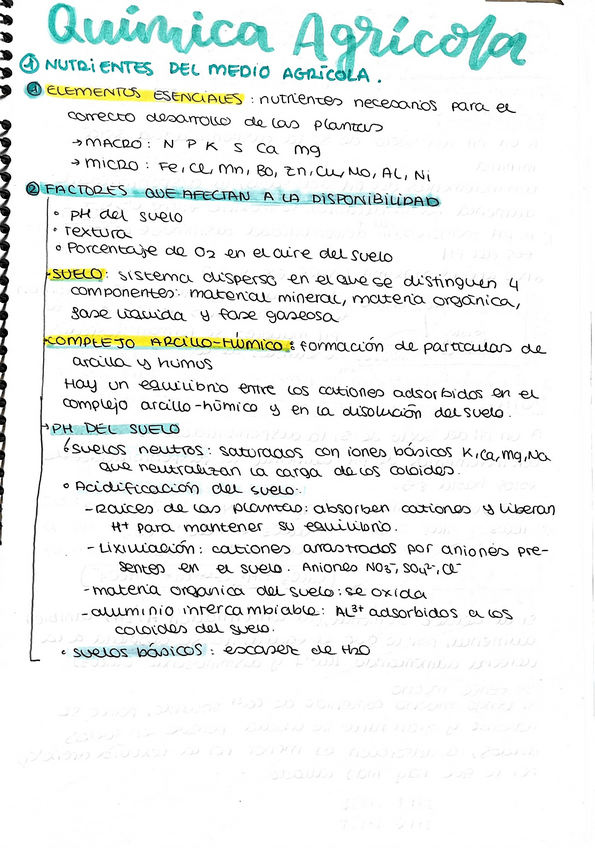 Química Agrícola
① NUTRIENTES DEL MEDIO AGRÍCOLA.
① ELEMENTOS ESENCIALES: nutrientes necesarios para el
correcto desarrollo de las plantas
→ MACRO: N P K S Ca Mg
→ MICRO: Fe, Cl, Mn, Bo, Zn, Cu, No, AL, Ni
② FACTORES QUE AFECTAN A LA DISPONIBILIDAD
° pH del suelo
° Textura
° Porcentaje de O2 en el aire del suelo
-SUELO: sistema disperso en el que se distinguen 4
componentes: material mineral, materia orgánica,
fase líquida y fase gaseosa
-COMPLEJO ARCILLO-HÚMICO: formación de partículas de
arcilla y humus
Hay un equilibrio entre los cationes adsorbidos en el
complejo arcillo-húmico y en la disolución del suelo.
→ PH DEL SUELO
° Suelos neutros: saturados con iones básicos K, Ca, Mg, Na
que neutralizan la carga de los coloides.
° Acidificación del suelo:
-Raíces de las plantas: absorben cationes y liberan
H+ para mantener su equilibrio.
-Lixiviación: cationes arrastrados por aniones pre-
sentes en el suelo. Aniones NO3-, SO4²-, Cl-
-materia orgánica del suelo: se oxida
-aluminio intercambiable: AL³+ adsorbidos a los
coloides del suelo.
° suelos básicos: escasez de H2O